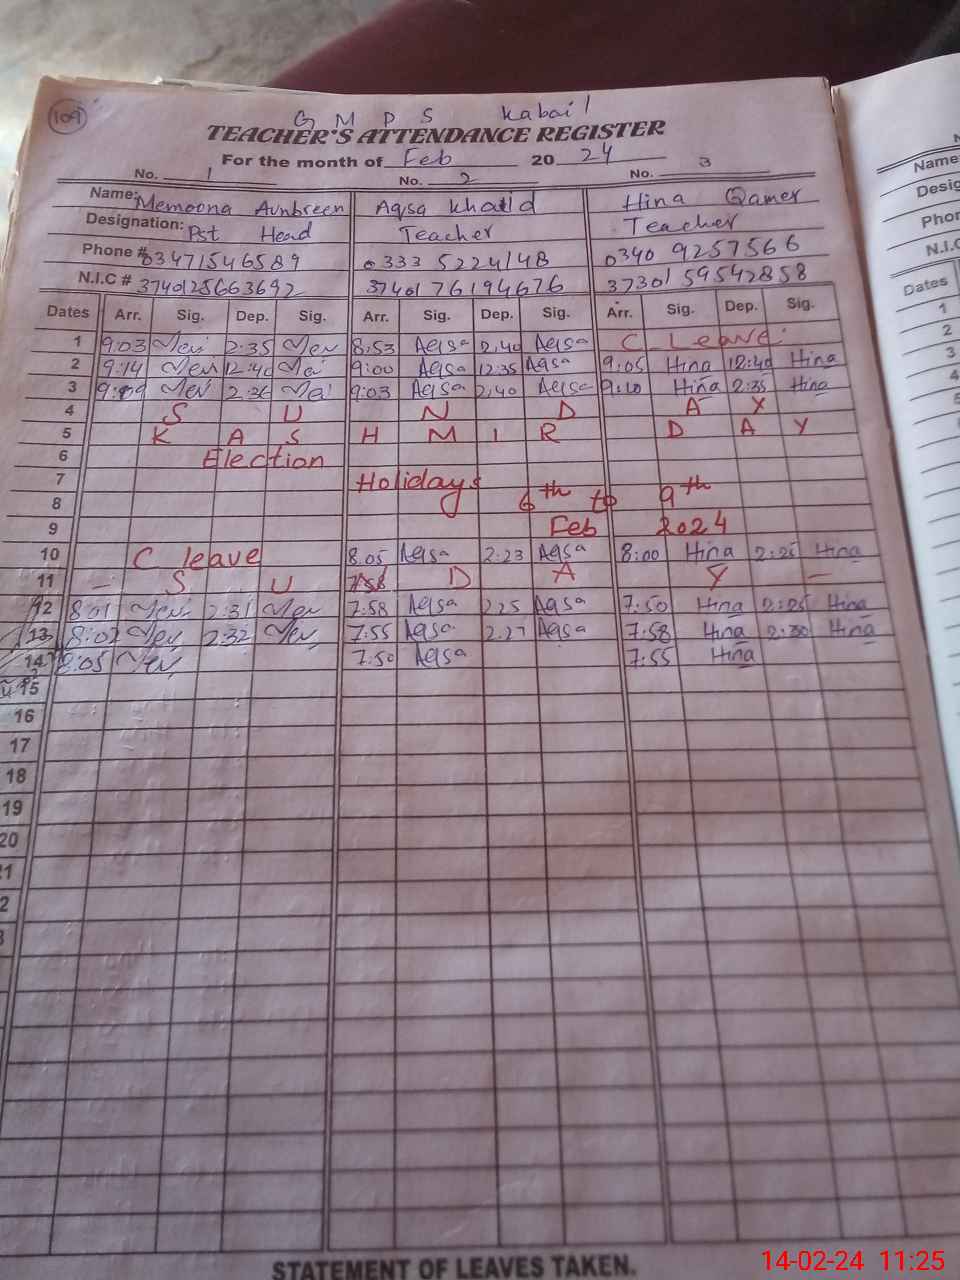 109
G M P S Kabail
TEACHER'S ATTENDANCE REGISTER
For the month of Feb 20 24
No. 1 No. 2 No. 3
Name: Memoona Aunbreen Aqsa Khalid Hina Qamer
Designation: Pst Head Teacher Teacher
Phone # 03471546589 0333 5224148 0340 9257566
N.I.C # 3740125663692 3740176194676 3730159542858
Dates Arr. Sig. Dep. Sig. Arr. Sig. Dep. Sig. Arr. Sig. Dep. Sig.
1 9:03 2:35 8:53 Aqsa 2:40 Aqsa C Leave
2 9:14 12:40 9:00 Aqsa 12:35 Aqsa 9:05 Hina 12:40 Hina
3 9:09 2:36 9:03 Aqsa 2:40 Aqsa 9:10 Hina 2:35 Hina
4 S U N D A Y
5 K A S H M I R D A Y
6 Election
7 Holidays
8 6th to 9th
9 Feb 2024
10 C leave 8:05 Aqsa 2:23 Aqsa 8:00 Hina Hina
11 - S U D A Y -
12 8:01 2:31 7:58 Aqsa 2:25 Aqsa 7:50 Hina 2:25 Hina
13 8:02 2:32 7:55 Aqsa 2:27 Aqsa 7:58 Hina 2:30 Hina
14 8:05 7:50 Aqsa 7:55 Hina
15
16
17
18
19
20
STATEMENT OF LEAVES TAKEN.
Name
Desig
Phon
N.I.C
Dates
1
2
3
4
14-02-24 11:25